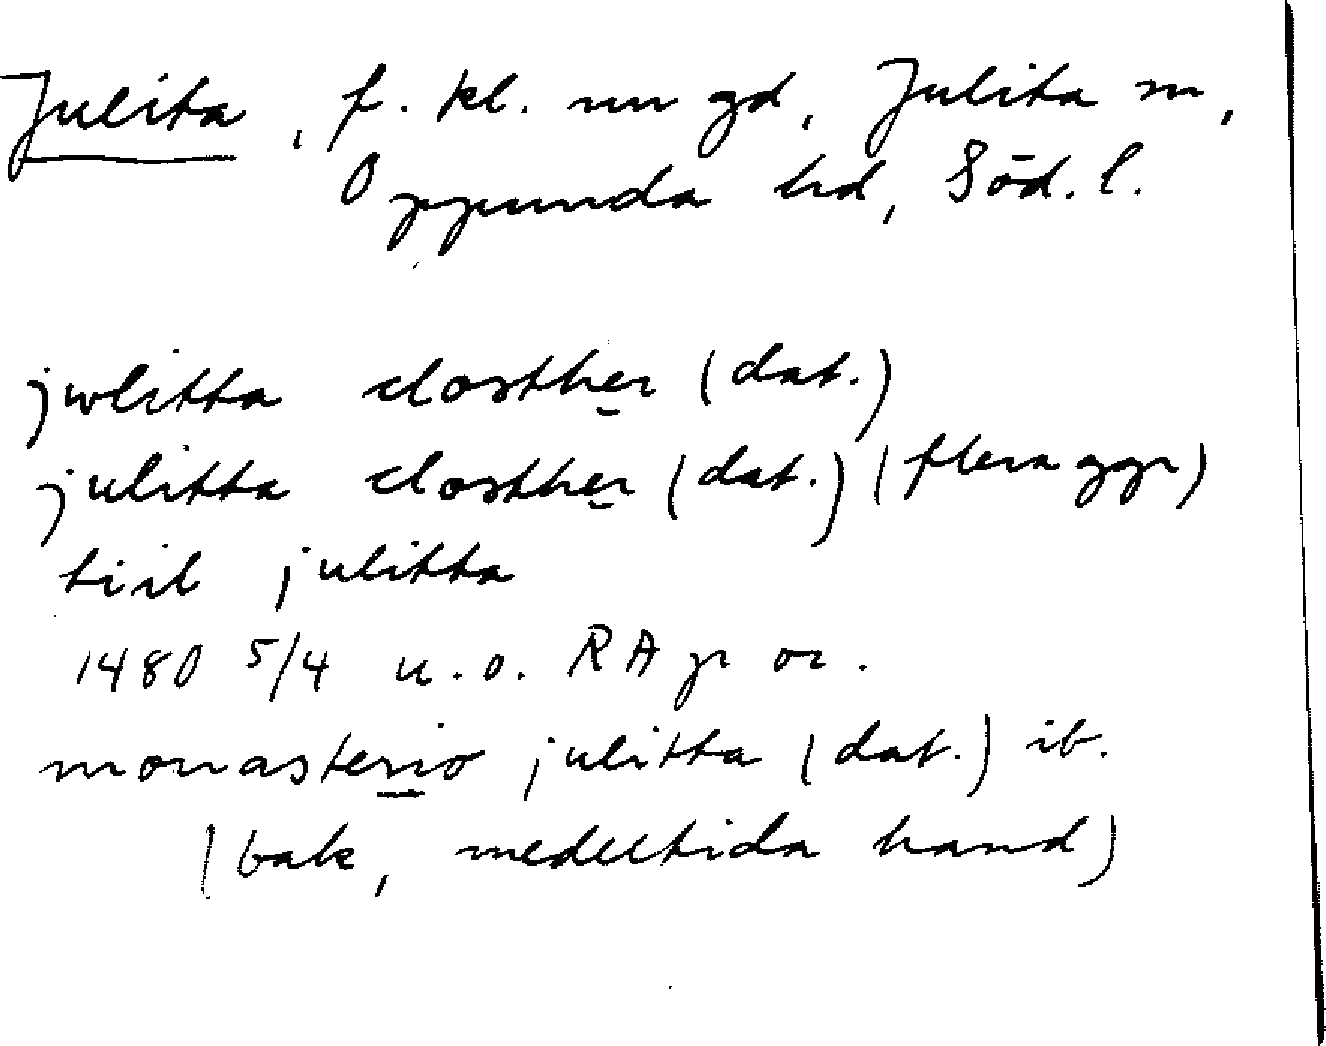 Julita, f. kl. nu gd, Julita sn,
Oppunda hd, Söd. l.
jwlitta closther (dat.)
julitta closther (dat.) (flera ggr)
tiil julitta
1480 5/4 u.o. RAp or.
monasterio julitta (dat.) ib.
(bak, medeltida hand)